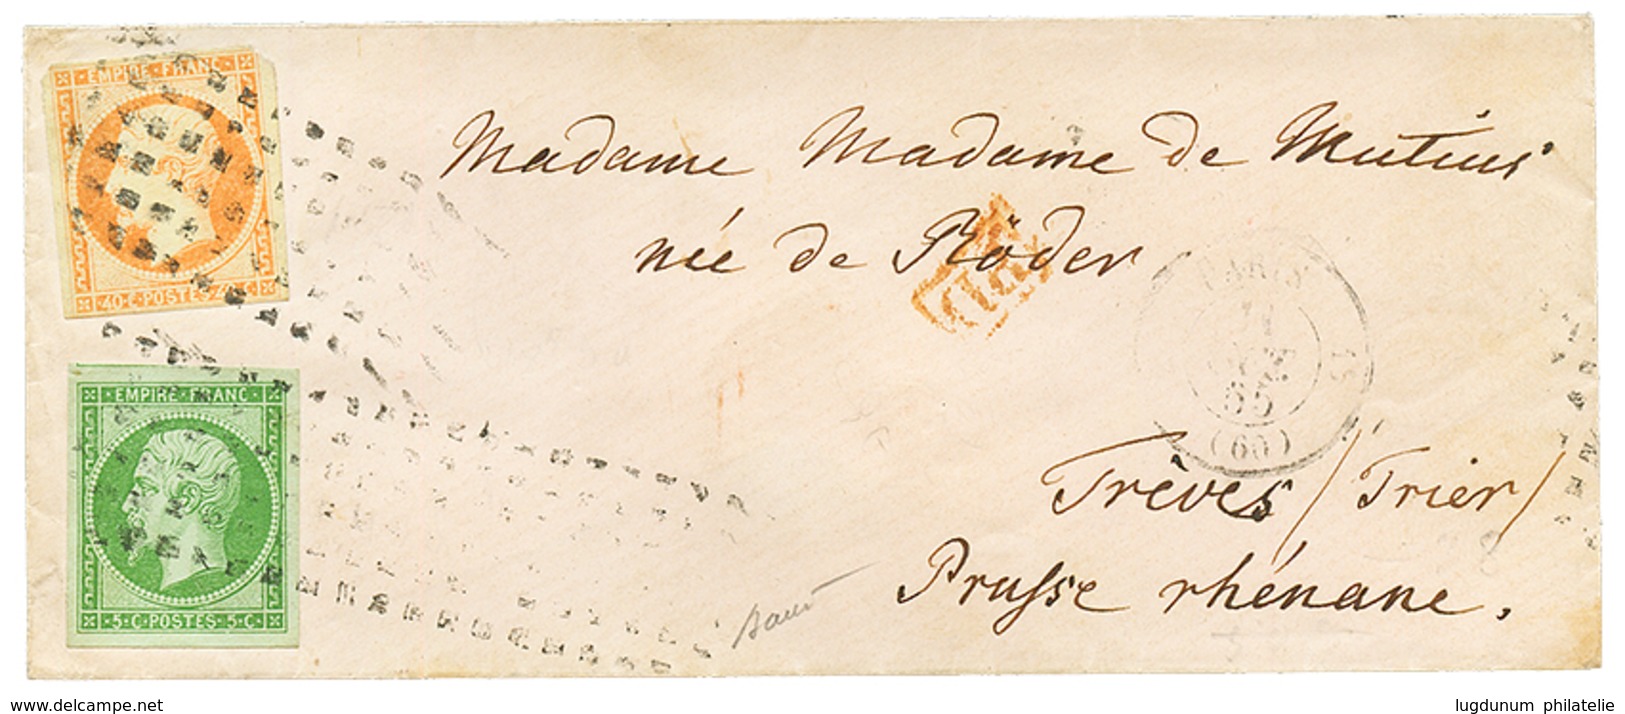 EMPIRE FRANC
40 C POSTES 40 C
Madame Madame de Mutius
née de Röder
PD
PARIS
55
(60)
EMPIRE FRANC
5 C POSTES 5 C
Trèves / Trier /
Prusse rhénane.
www.delcampe.net
lugdunum philatelie